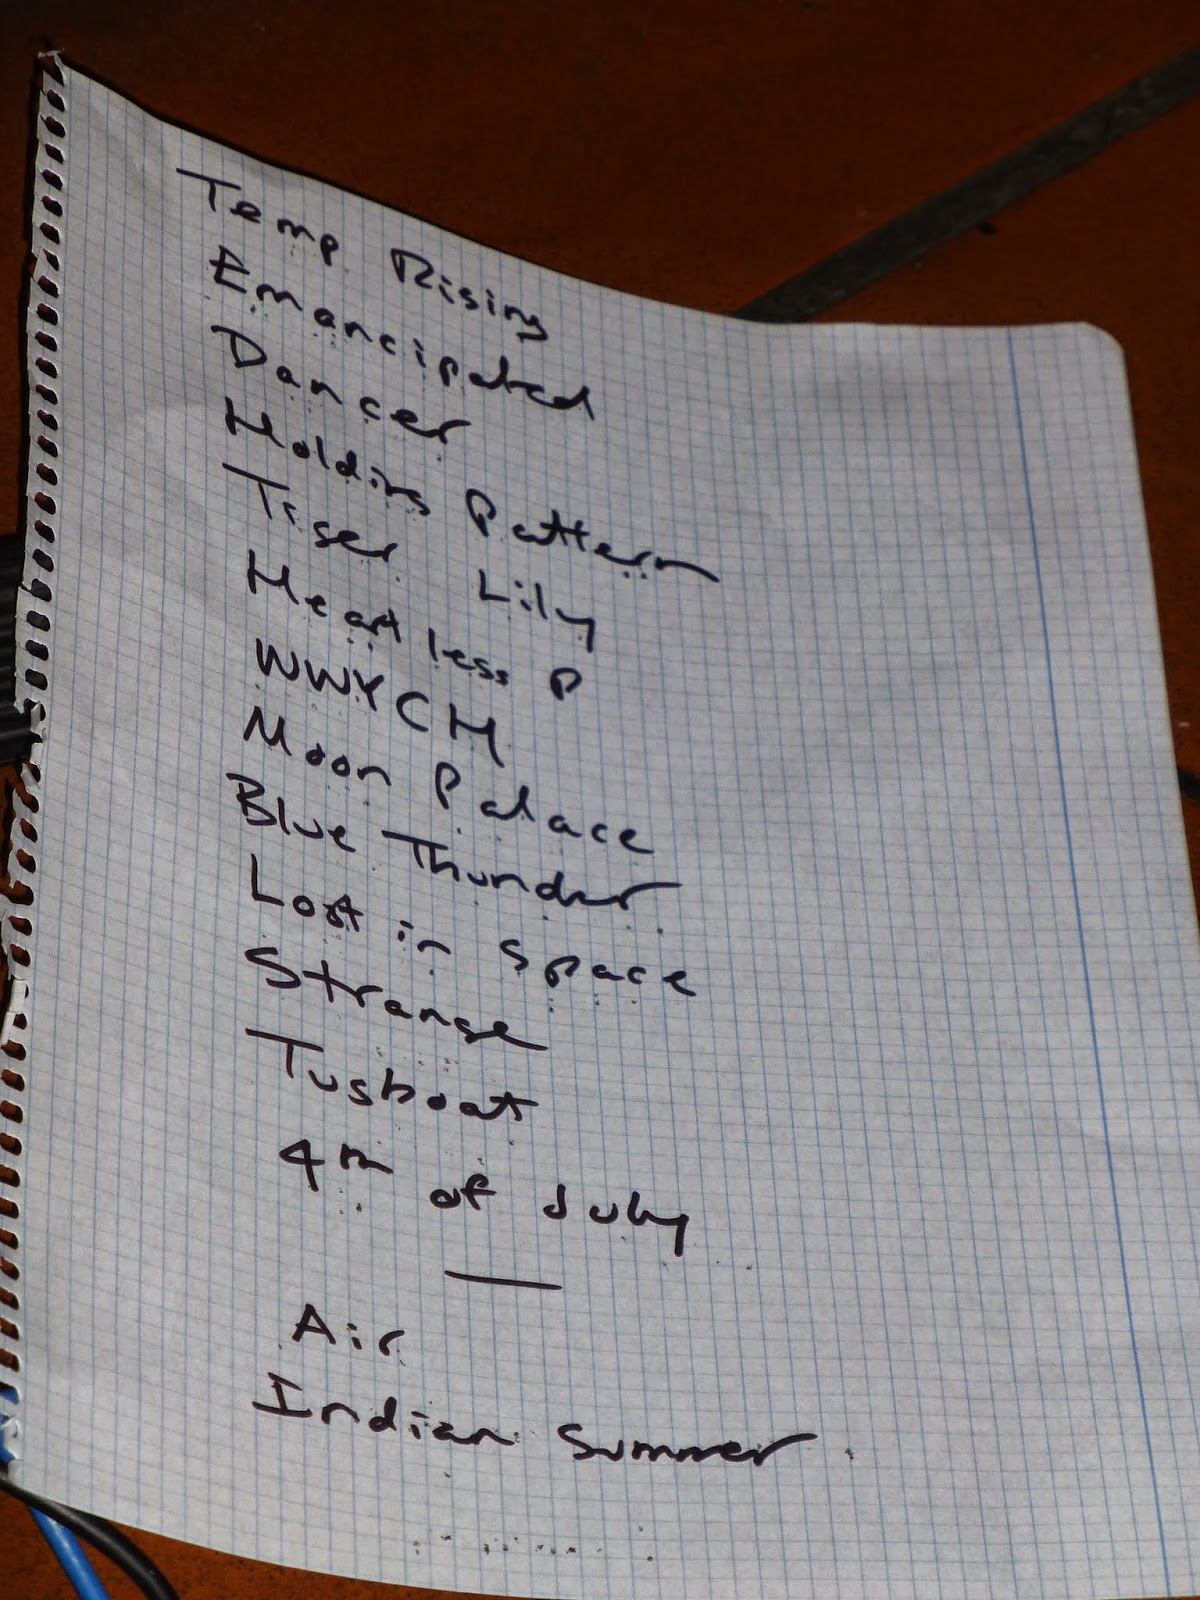 Temp Rising
Emancipated
Dancer
Holding Pattern
Tiger Lily
Heartless P
WWYCH
Moon Palace
Blue Thunder
Lost in Space
Strange
Tugboat
4th of July
—
Air
Indian Summer